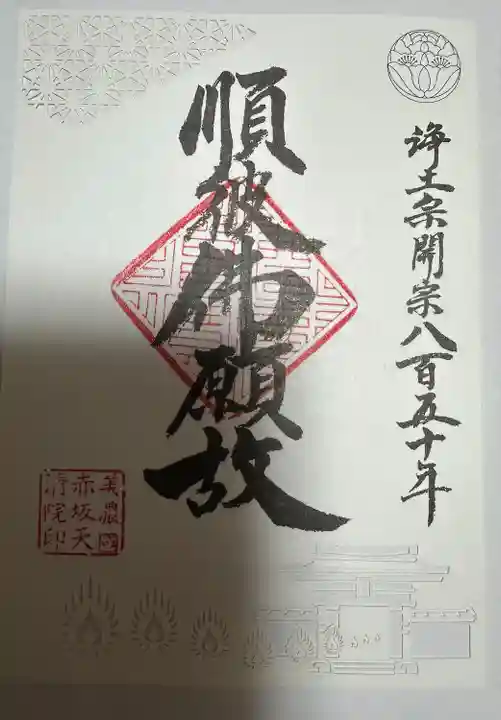 浄土宗開宗八百五十年
順彼佛願故
美濃國
赤坂天
清院印